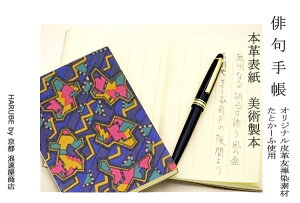 俳句手帳
オリジナル皮革友禅染素材
たとかーふ使用
本革表紙　美術製本
HARUBE by 京都 浪速屋商店